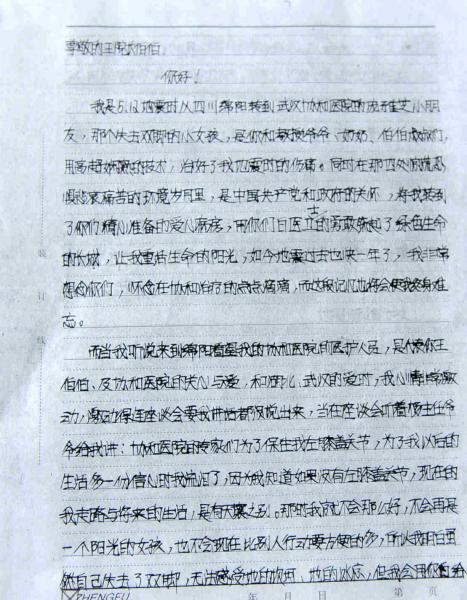 尊敬的王院长伯伯:
你好!
我是5.12地震时从四川绵阳转到武汉协和医院的 小朋
友,那个失去双脚的小女孩,是你和教授爷爷、奶奶、伯伯叔叔们,
用高超 的技术,治好了我地震时的伤痛。同时在那四处
痛苦的环境岁月里,是中国共产党和政府的关怀,将我转到
了你们精心准备的爱心病房,用你们白医 士的勇敢 了绿色生命
的长城,让我重 生命的阳光,如今地震过去也快一年了,我非常
想念你们,怀念在协和治疗的点点滴滴,而这段记忆也将会使我终身难
忘。
而当我听说来到绵阳看望我的协和医院的医护人员,是 你王
伯伯、及协和医院的关心与爱,和湖北、武汉的爱时,我心情非常激
动,激动得连座谈会要我讲话都没说出来,当在座谈会听着 主任爷
爷给我讲:协和医院的专家们为了保住我左膝盖关节,为了我以后的
生活多一份信心时我流泪了,因为我知道如果没有左膝盖关节,现在的
我走路与将来的生活,是有天 之别。那时我就不会那么好,不会再是
一个阳光的女孩,也不会现在比别人行动要方便的多,所以我明白虽
然自己失去了双脚,无法感受地的 、地的冰凉,但我会用你们给
ZHENGFU 年 月 日 第 页
装
订
线